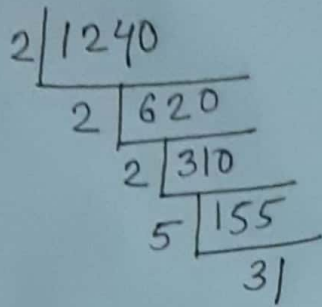 2 1240
2 620
2 310
5 155
31